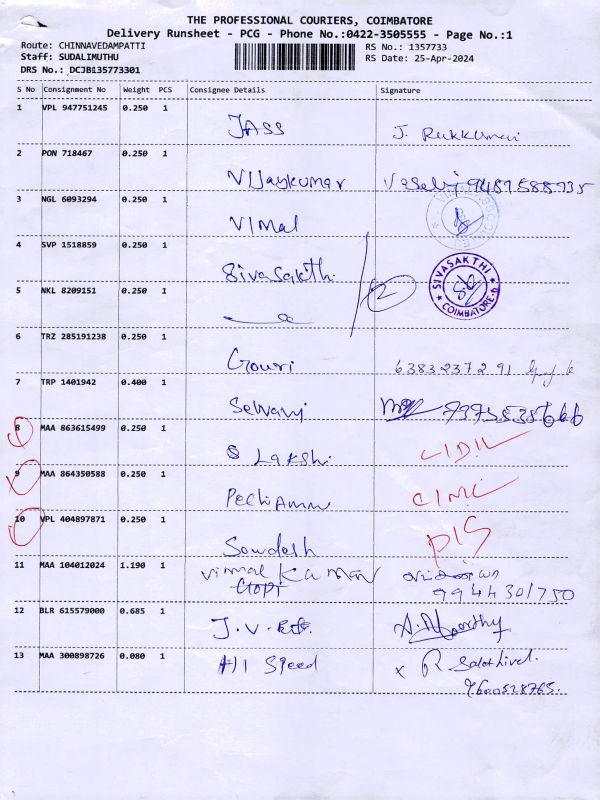 THE PROFESSIONAL COURIERS, COIMBATORE
Delivery Runsheet - PCG - Phone No.:0422-3505555 - Page No.:1
Route: CHINNAVEDAMPATTI
RS No.: 1357733
Staff: SUDALIMUTHU
RS Date: 25-Apr-2024
DRS No.: DCJB135773301
S No Consignment No Weight PCS Consignee Details Signature
1 VPL 947751245 0.250 1
JASS J. Rukkumani
2 PON 718467 0.250 1
VIJaykumar 9487588935
3 NGL 6093294 0.250 1
VIMal
4 SVP 1518859 0.250 1
SivaSakthi
SIVASAKTHI
COIMBATORE-6
2
5 NKL 8209151 0.250 1
6 TRZ 285191238 0.250 1
Gouri 6383237291
7 TRP 1401942 0.400 1
Selvavj
8 MAA 863615499 0.250 1
S Lakshi
9 MAA 864350588 0.250 1
PechiAmm
10 VPL 404897871 0.250 1
Sowdesh
11 MAA 104012024 1.190 1
Vimmal Kaman
Gopi
9944301750
12 BLR 615579000 0.685 1
J.V.
13 MAA 300898726 0.080 1
HI Speed x R Sakthivel.
9600528765.